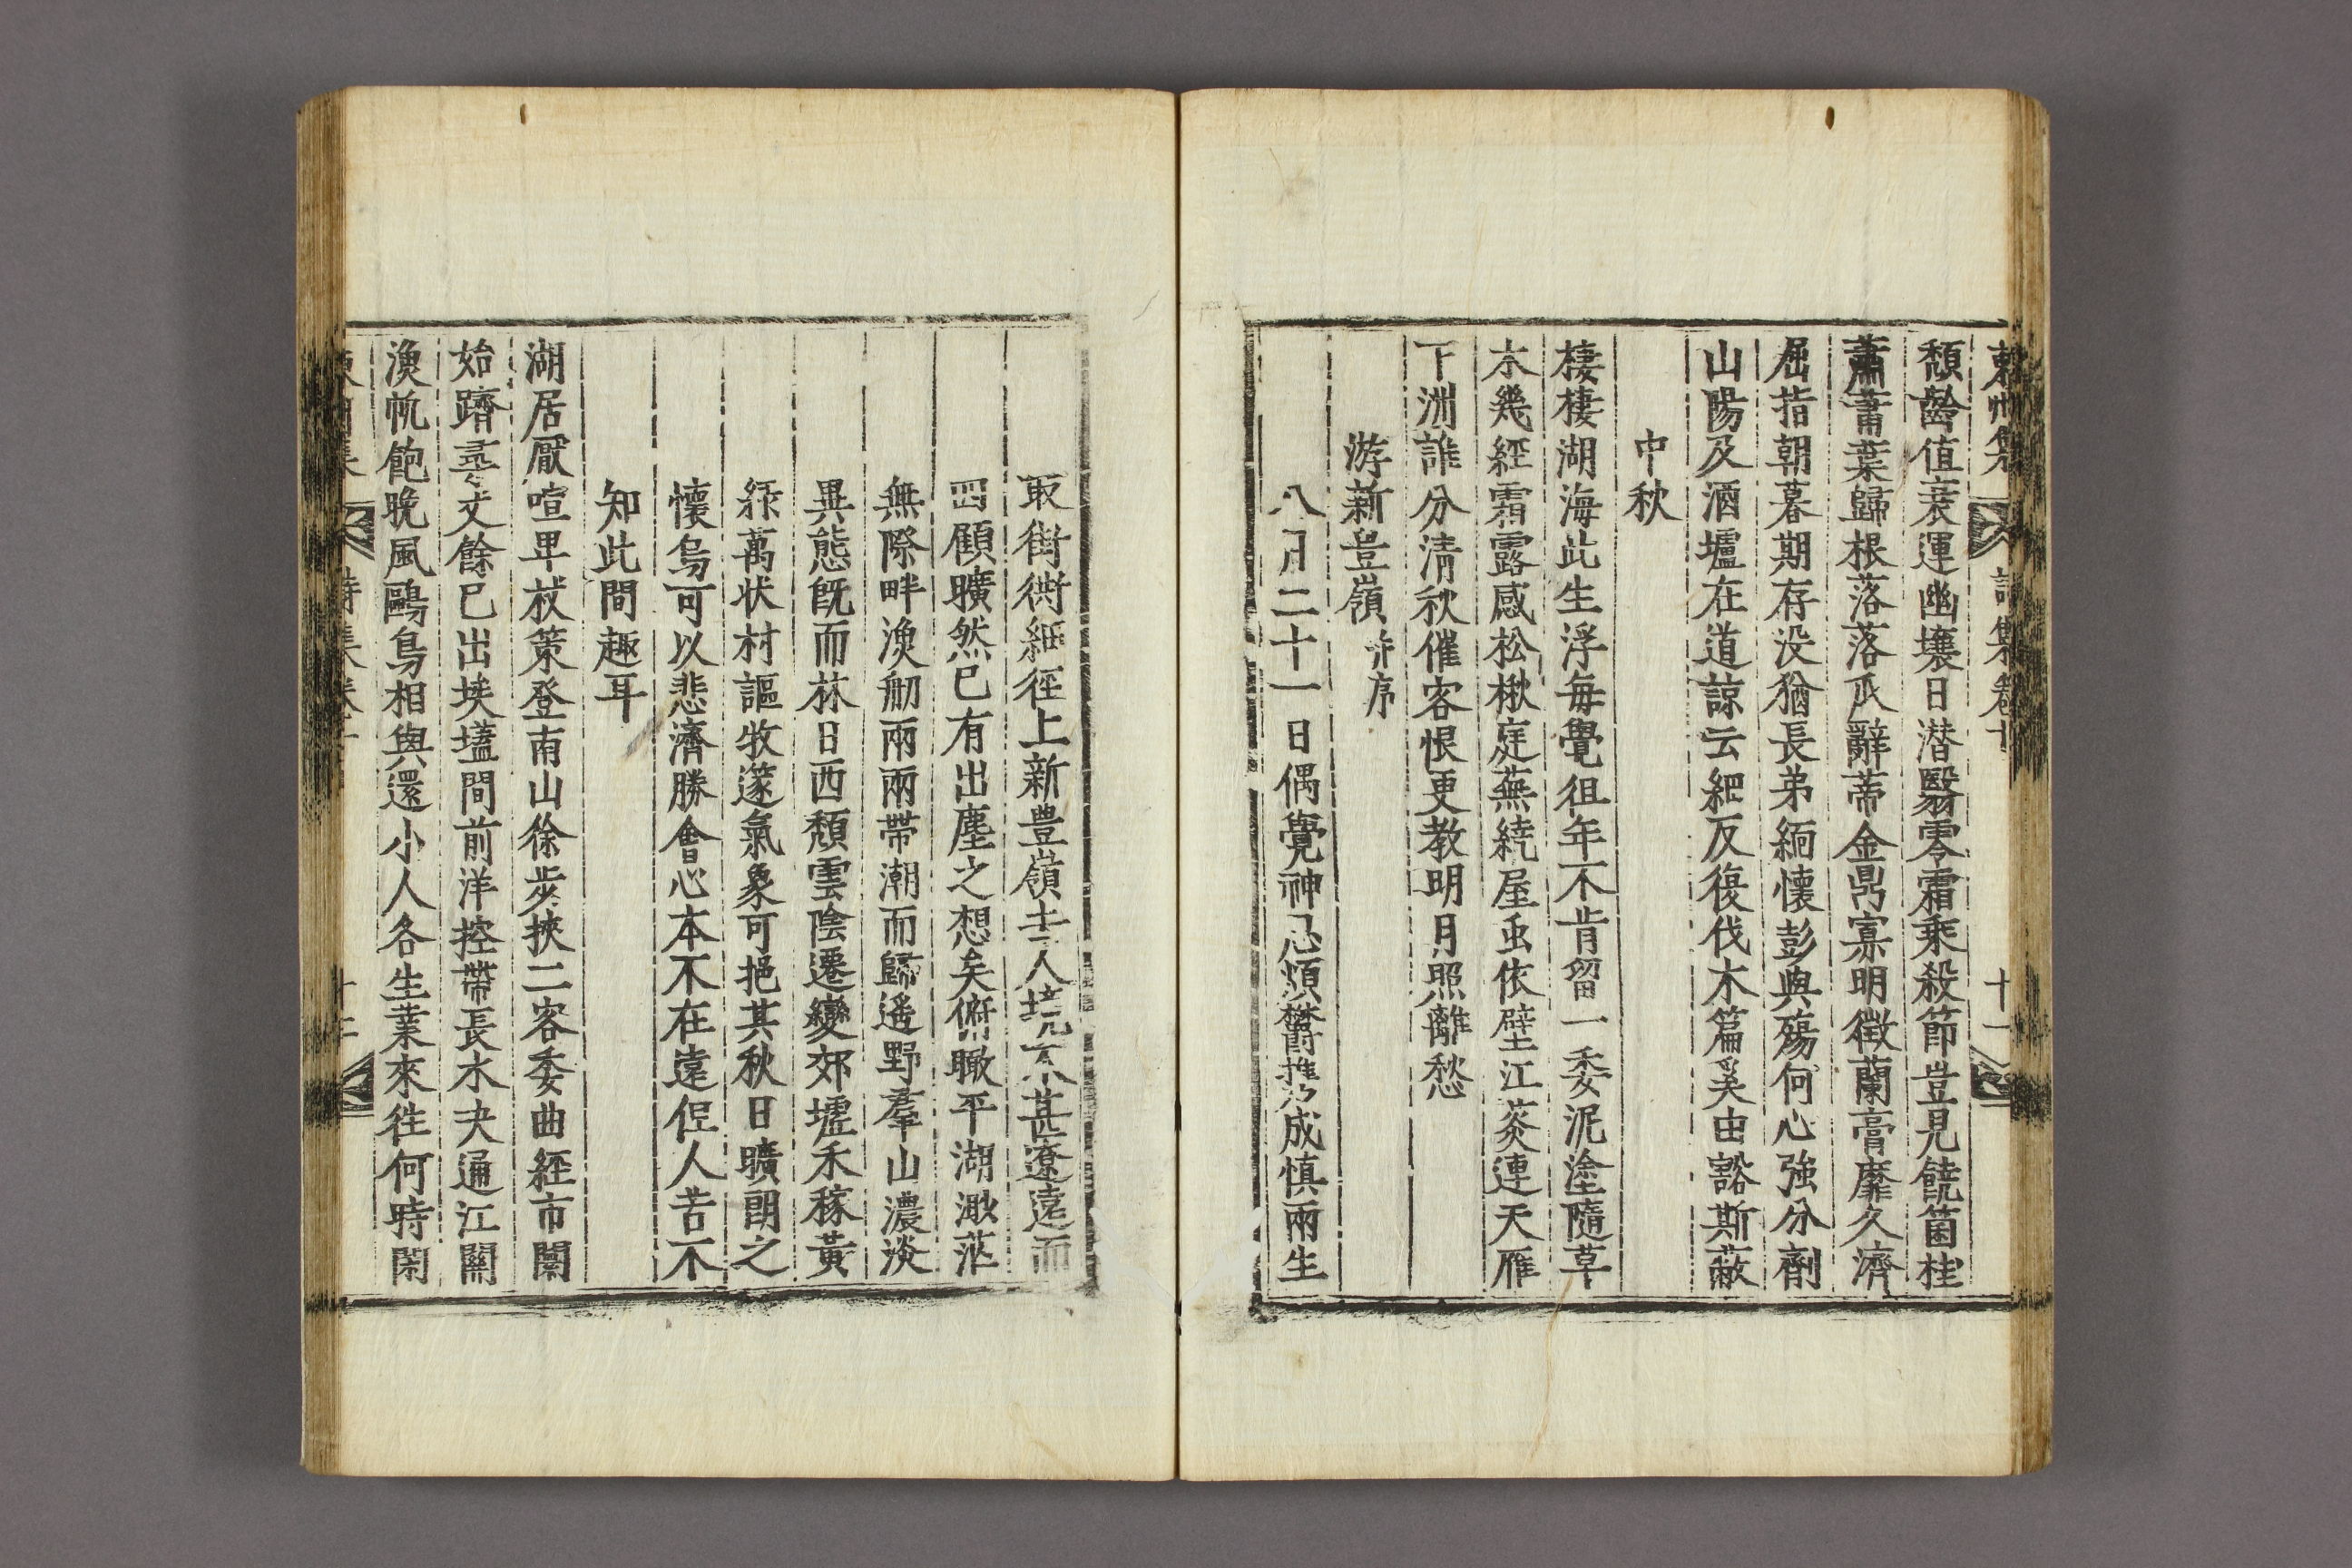 詩集卷十 十一
頹齡值衰運幽壤日潛翳零霜乘殺節豈見饒箘桂
蕭蕭葉歸根落落瓜辭蒂金鼎寡明徵蘭膏靡久濟
屈指朝暮期存没猶長弟緬懷彭與殤何心強分劑
山陽及酒壚在道諒云細反復伐木篇奚由豁斯蔽
中秋
棲棲湖海此生浮每覺徂年不肯留一委泥塗隨草
木幾經霜露感松楸庭蕪繞屋虫依壁江菼連天雁
下洲誰分清秋催客恨更教明月照離愁
游新豊嶺 并序
八月二十一日偶覺神思煩欝携乃成慎兩生
取街衖細徑上新豊嶺去人境不甚遼遠而
四顧曠然已有出塵之想矣俯瞰平湖澉茫
無際畔漁舠兩兩帶潮而歸遙野羣山濃淡
異態旣而林日西頹雲陰遷變郊墟禾稼黃
緑萬狀村謳牧邃氣象可挹其秋日曠朗之
懷烏可以悲濟勝會心本不在遠但人苦不
知此間趣耳
湖居厭喧卑杖策登南山徐步挾二客委曲經市闤
始躋尋丈餘已出埃壒間前洋控帶長水夬通江關
漁帆飽晚風鷗鳥相與還小人各生業來往何時閑